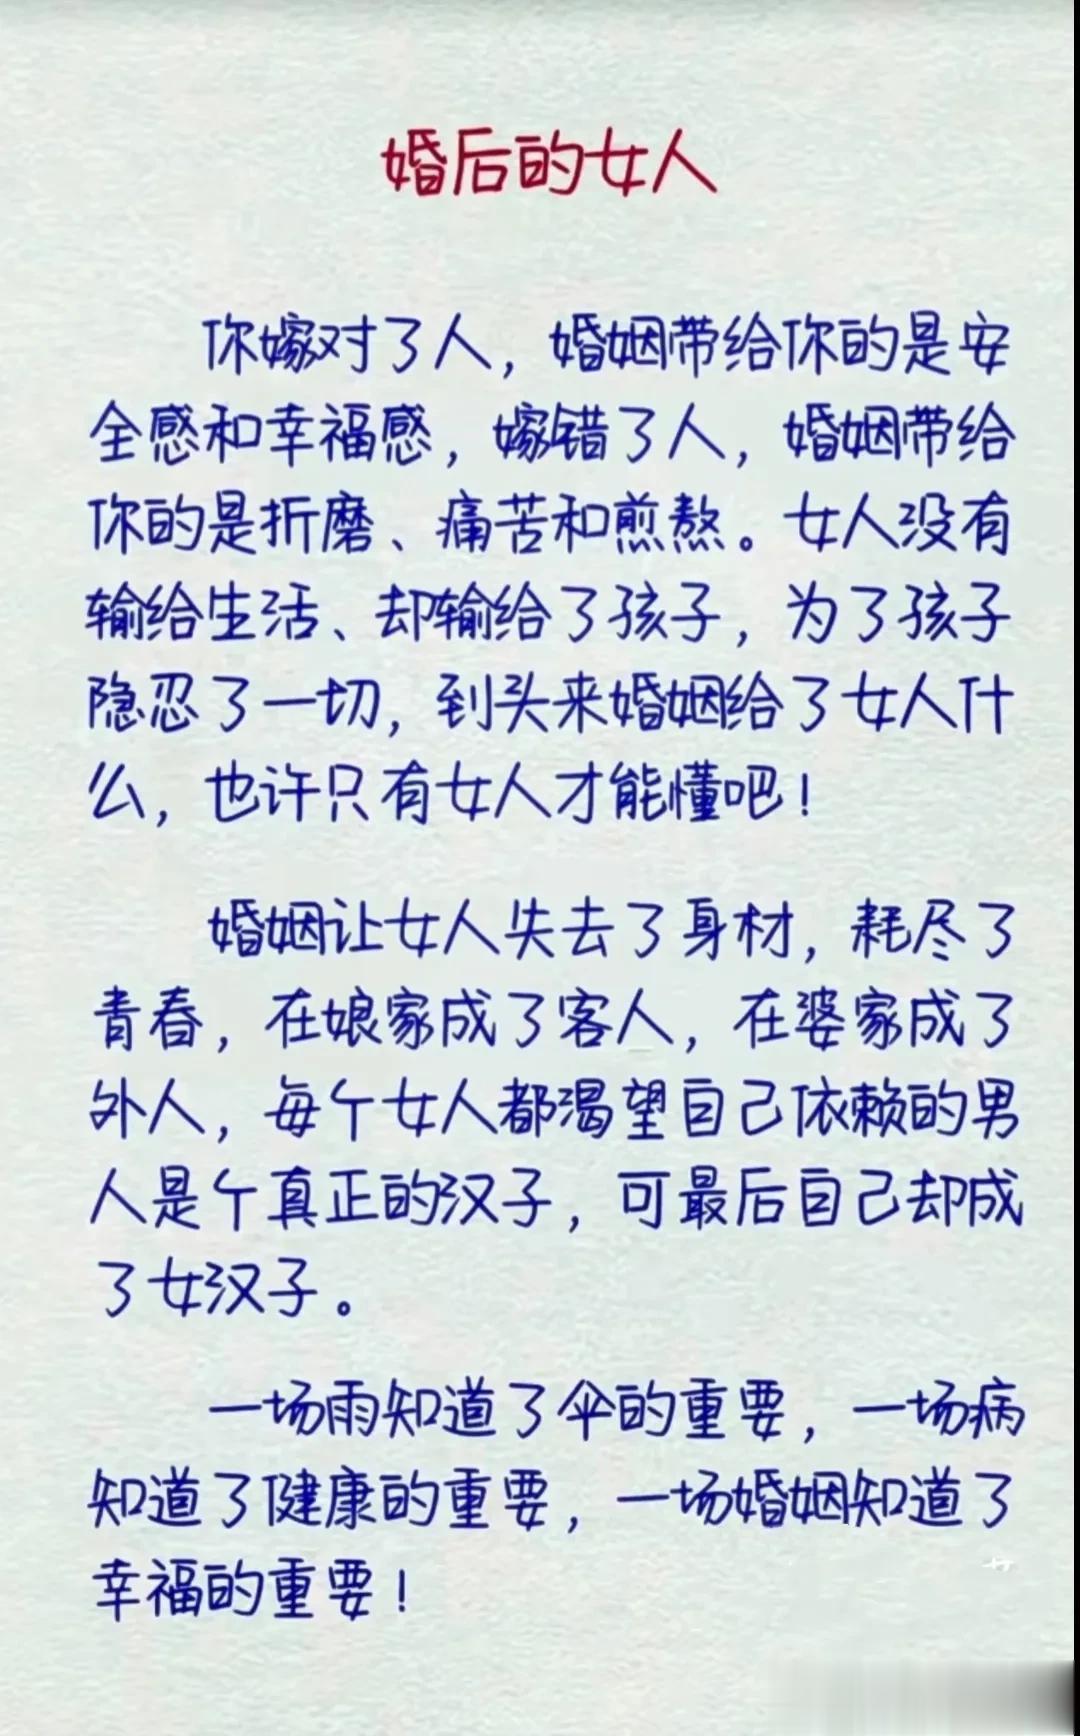 婚后的女人
你嫁对了人，婚姻带给你的是安
全感和幸福感，嫁错了人，婚姻带给
你的是折磨、痛苦和煎熬。女人没有
输给生活、却输给了孩子，为了孩子
隐忍了一切，到头来婚姻给了女人什
么，也许只有女人才能懂吧！
婚姻让女人失去了身材，耗尽了
青春，在娘家成了客人，在婆家成了
外人，每个女人都渴望自己依赖的男
人是个真正的汉子，可最后自己却成
了女汉子。
一场雨知道了伞的重要，一场病
知道了健康的重要，一场婚姻知道了
幸福的重要！